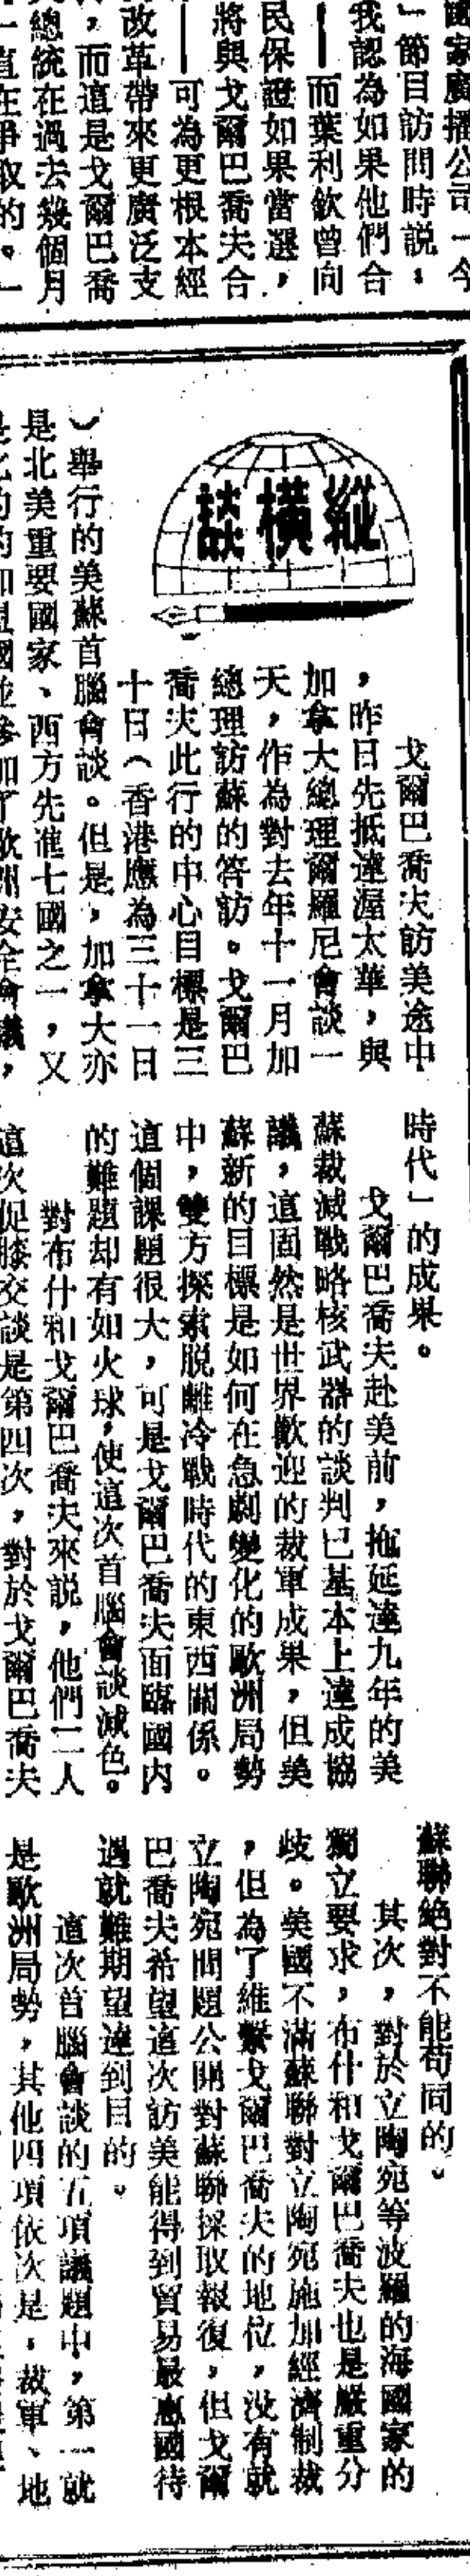 國家廣播公司一今
﹂節目訪問時説：
我認為如果他們合
——而葉利欽曾向
民保證如果當選，
將與戈爾巴喬夫合
——可為更根本經
改革帶來更廣泛支
，而這是戈爾巴喬
總統在過去幾個月
一直在爭取的。一
縱橫談
戈爾巴喬夫訪美途中
，昨日先抵達渥太華，與
加拿大總理爾羅尼會談一
天，作為對去年十一月加
總理訪蘇的答訪。戈爾巴
喬夫此行的中心目標是三
十日（香港應為三十一日
）舉行的美蘇首腦會談。但是，加拿大亦
是北美重要國家、西方先進七國之一，又
時代﹂的成果。
戈爾巴喬夫赴美前，拖延達九年的美
蘇裁減戰略核武器的談判已基本上達成協
議，這固然是世界歡迎的裁軍成果，但美
蘇新的目標是如何在急劇變化的歐洲局勢
中，雙方探索脱離冷戰時代的東西關係。
這個課題很大，可是戈爾巴喬夫面臨國内
的難題却有如火球，使這次首腦會談減色。
對布什和戈爾巴喬夫來説，他們二人
這次促膝交談是第四次，對於戈爾巴喬夫
蘇聯絕對不能苟同的。
其次，對於立陶宛等波羅的海國家的
獨立要求，布什和戈爾巴喬夫也是嚴重分
歧。美國不滿蘇聯對立陶宛施加經濟制裁
，但為了維繫戈爾巴喬夫的地位，没有就
立陶宛問題公開對蘇聯採取報復，但戈爾
巴喬夫希望這次訪美能得到貿易最惠國待
遇就難期望達到目的。
這次首腦會談的五項議題中，第一就
是歐洲局勢，其他四項依次是，裁軍、地